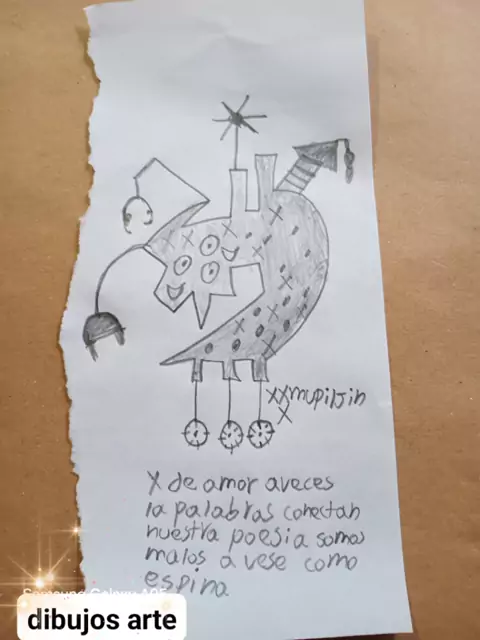 xxmupiljin
x
x de amor aveces
la palabras conectan
nuestra poesia somos
malos a vese como
espina
Samsung Galaxy A05
dibujos arte